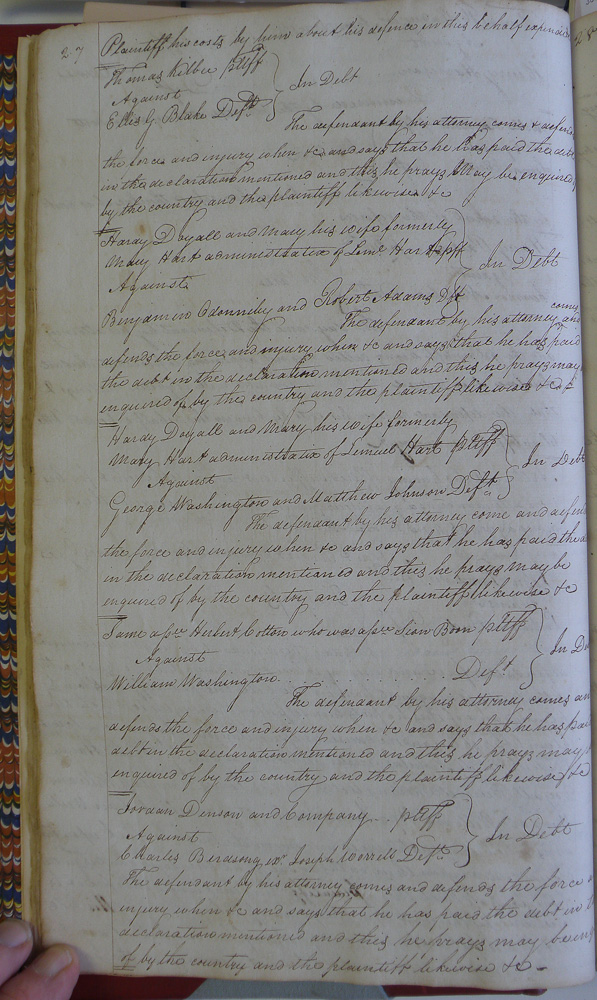 27 Plaintiff his costs by him about his defence in this behalf expended
Thomas Kilbee pltff
Against
Elles G. Blake Deft.
In Debt
The defendant by his attorney comes & defends
the force and injury when &c and says that he has paid the debt
in the declaration mentioned and this he prays may be enquired
by the country and the plaintiff likewise &c
Hardy Doyall and Mary his wife formerly
Mary Hart administratrix of Leml Hart pff
Against
In Debt
Benjamin Edonniley and Robert Adams Dft
comes
The defendant by his attorney and
defends the force and injury when &c and says that he has paid
the debt in the declaration mentioned and this he prays may
enquired of by the country and the plaintiff likewise &c
Hardy Doyall and Mary his wife formerly
Mary Hart administratrix of Lemuel Hart pltff
Against
In Debt
George Washington and Matthew Johnson Deft.
The defendant by his attorney come and defen
the force and injury when &c and says that he has paid the
in the declaration mentioned and this he prays may be
enquired of by the country and the plaintiff likewise &c
Same assee Herbert Cotton who was assee Sion Boon pltff
Against
In De
William Washington Deft
The defendant by his attorney comes an
defends the force and injury when &c and says that he has pai
debt in the declaration mentioned and this he prays may
enquired of by the country and the plaintiff likewise &c
Jordan Denson and Company pltff
Against
In Debt
Charles Berdsong exr Joseph Worrell Deft.
The defendant by his attorney comes and defends the force
injury when &c and says that he has paid the debt in
declaration mentioned and this he prays may be en
of by the country and the plaintiff likewise &c